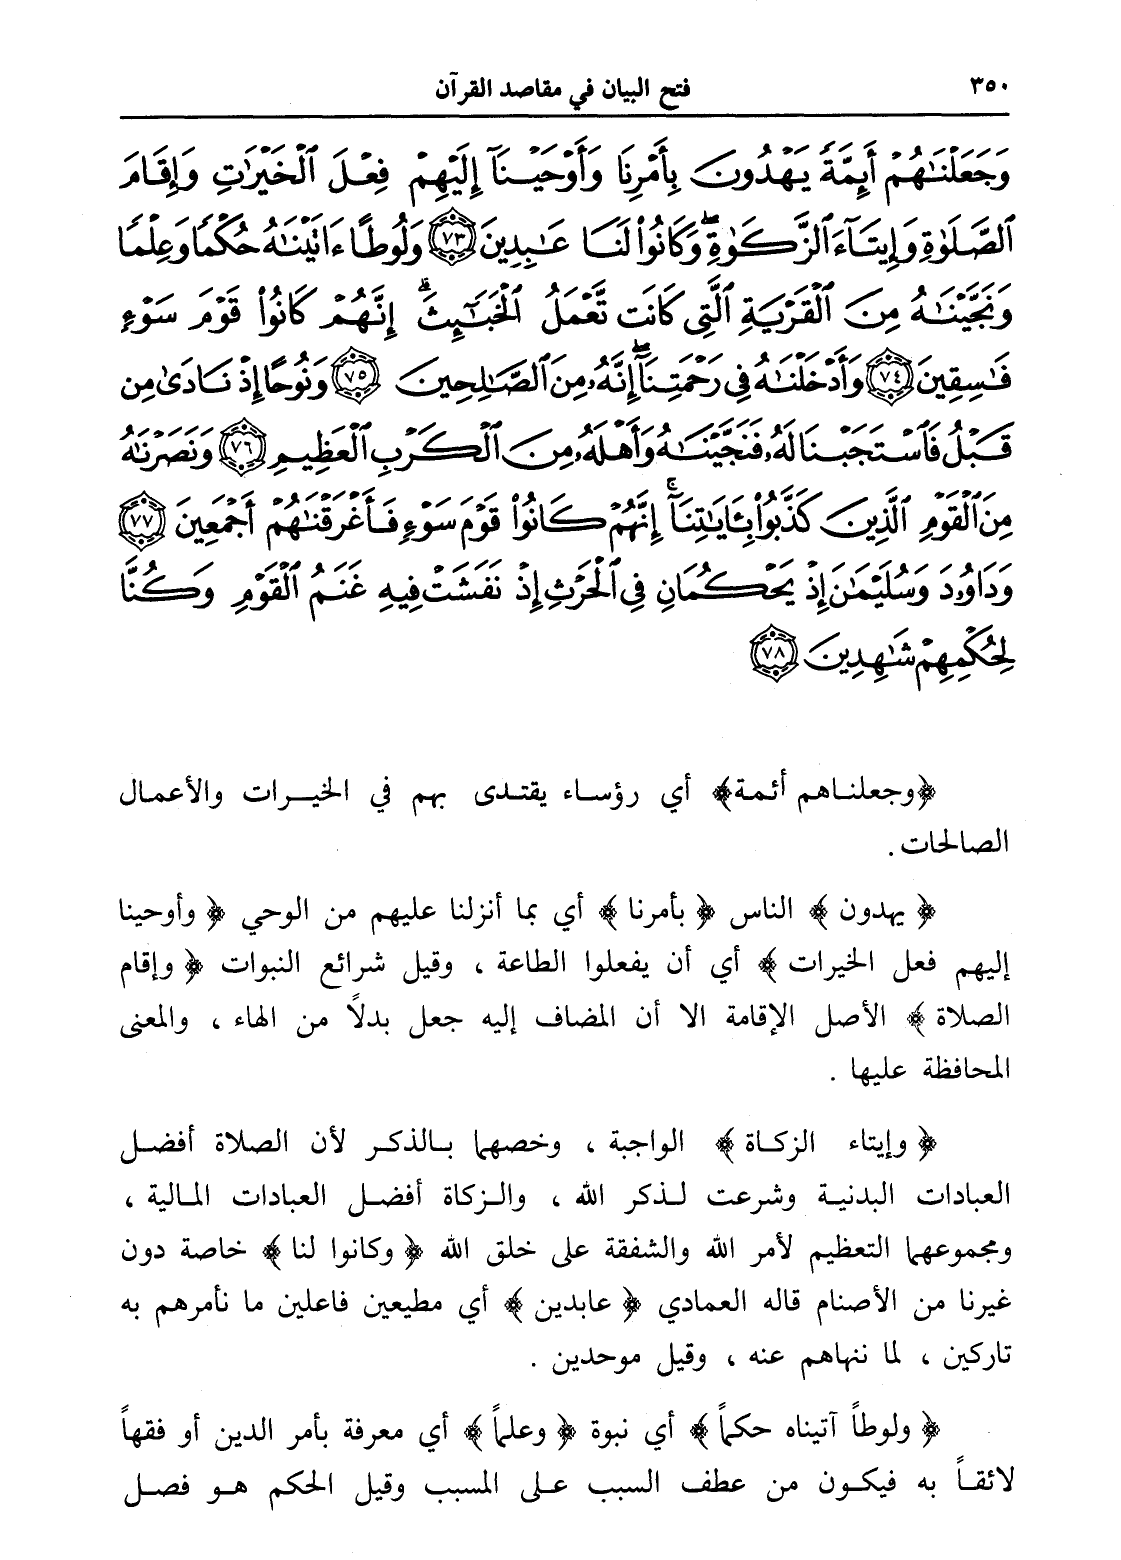 ٣٥٠ فتح البيان في مقاصد القرآن
وَجَعَلْنَٰهُمْ أَئِمَّةً يَهْدُونَ بِأَمْرِنَا وَأَوْحَيْنَآ إِلَيْهِمْ فِعْلَ ٱلْخَيْرَٰتِ وَإِقَامَ
ٱلصَّلَوٰةِ وَإِيتَآءَ ٱلزَّكَوٰةِ ۖ وَكَانُوا۟ لَنَا عَٰبِدِينَ ٧٣ وَلُوطًا ءَاتَيْنَٰهُ حُكْمًا وَعِلْمًا
وَنَجَّيْنَٰهُ مِنَ ٱلْقَرْيَةِ ٱلَّتِى كَانَت تَّعْمَلُ ٱلْخَبَٰٓئِثَ ۗ إِنَّهُمْ كَانُوا۟ قَوْمَ سَوْءٍ
فَٰسِقِينَ ٧٤ وَأَدْخَلْنَٰهُ فِى رَحْمَتِنَآ ۖ إِنَّهُۥ مِنَ ٱلصَّٰلِحِينَ ٧٥ وَنُوحًا إِذْ نَادَىٰ مِن
قَبْلُ فَٱسْتَجَبْنَا لَهُۥ فَنَجَّيْنَٰهُ وَأَهْلَهُۥ مِنَ ٱلْكَرْبِ ٱلْعَظِيمِ ٧٦ وَنَصَرْنَٰهُ
مِنَ ٱلْقَوْمِ ٱلَّذِينَ كَذَّبُوا۟ بِـَٔايَٰتِنَآ ۚ إِنَّهُمْ كَانُوا۟ قَوْمَ سَوْءٍ فَأَغْرَقْنَٰهُمْ أَجْمَعِينَ ٧٧
وَدَاوُۥدَ وَسُلَيْمَٰنَ إِذْ يَحْكُمَانِ فِى ٱلْحَرْثِ إِذْ نَفَشَتْ فِيهِ غَنَمُ ٱلْقَوْمِ وَكُنَّا
لِحُكْمِهِمْ شَٰهِدِينَ ٧٨
﴿وجعلناهم أئمة﴾ أي رؤساء يقتدى بهم في الخيرات والأعمال
الصالحات .
﴿ يهدون ﴾ الناس ﴿ بأمرنا ﴾ أي بما أنزلنا عليهم من الوحي ﴿ وأوحينا
إليهم فعل الخيرات ﴾ أي أن يفعلوا الطاعة ، وقيل شرائع النبوات ﴿ وإقام
الصلاة ﴾ الأصل الإقامة الا أن المضاف إليه جعل بدلاً من الهاء ، والمعنى
المحافظة عليها .
﴿ وإيتاء الزكاة ﴾ الواجبة ، وخصهما بالذكر لأن الصلاة أفضل
العبادات البدنية وشرعت لذكر الله ، والزكاة أفضل العبادات المالية ،
ومجموعهما التعظيم لأمر الله والشفقة على خلق الله ﴿ وكانوا لنا ﴾ خاصة دون
غيرنا من الأصنام قاله العمادي ﴿ عابدين ﴾ أي مطيعين فاعلين ما نأمرهم به
تاركين ، لما ننهاهم عنه ، وقيل موحدين .
﴿ ولوطاً آتيناه حكماً ﴾ أي نبوة ﴿ وعلماً ﴾ أي معرفة بأمر الدين أو فقهاً
لائقاً به فيكون من عطف السبب على المسبب وقيل الحكم هو فصل